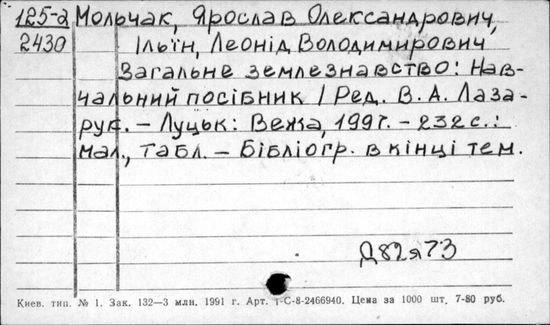 125-2 Мольчак, Ярослав Олександрович,
2430 Ільїн, Леонід Володимирович
Загальне землезнавство: Нав-
чальний посібник / Ред. В. А. Лаза-
рук. – Луцьк: Вежа, 1997. – 232 с.:
мал., табл. – Бібліогр. в кінці тем.
Д82я73
Киев. тип. № 1. Зак. 132—3 млн. 1991 г. Арт. 1-С-8-2466940. Цена за 1000 шт. 7-80 руб.